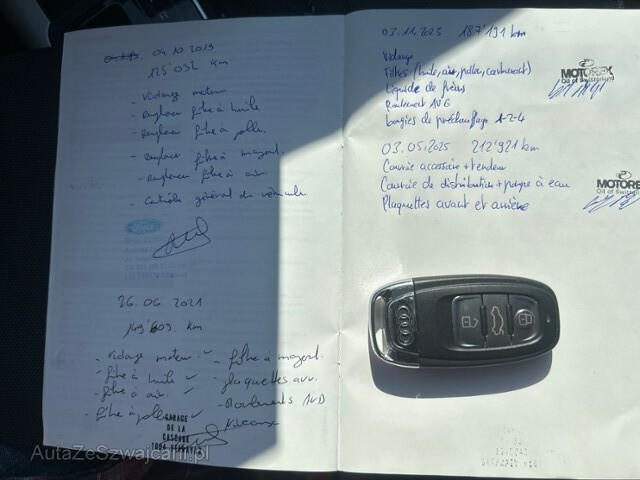 04.10.2019
125'032 km
- Vidange moteur
- Remplacer filtre à huile
- Remplacer filtre à pollen
- Remplacer filtre à mazout
- Remplacer filtre à air
- Contrôle général du véhicule
Ford
26.06.2021
km
- Vidange moteur ✓
- filtre à huile ✓
- filtre à air ✓
- filtre à pollen ✓
- filtre à mazout
- plaquettes
- Roulements AVD
GARAGE
DE LA
CASCADE
03.11.2023 187'191 km
Vidange
Filtres (huile, air, pollen, carburant)
Liquide de freins
Roulement AVG
bougies de préchauffage 1-2-4
MOTOREX
Oil of Switzerland
03.05.2025 212'921 km
Courroie accessoire + tendeur
Courroie de distribution + pompe à eau
Plaquettes avant et arrière
MOTOREX
Oil of Switzerland
AutaZeSzwajcarii.pl